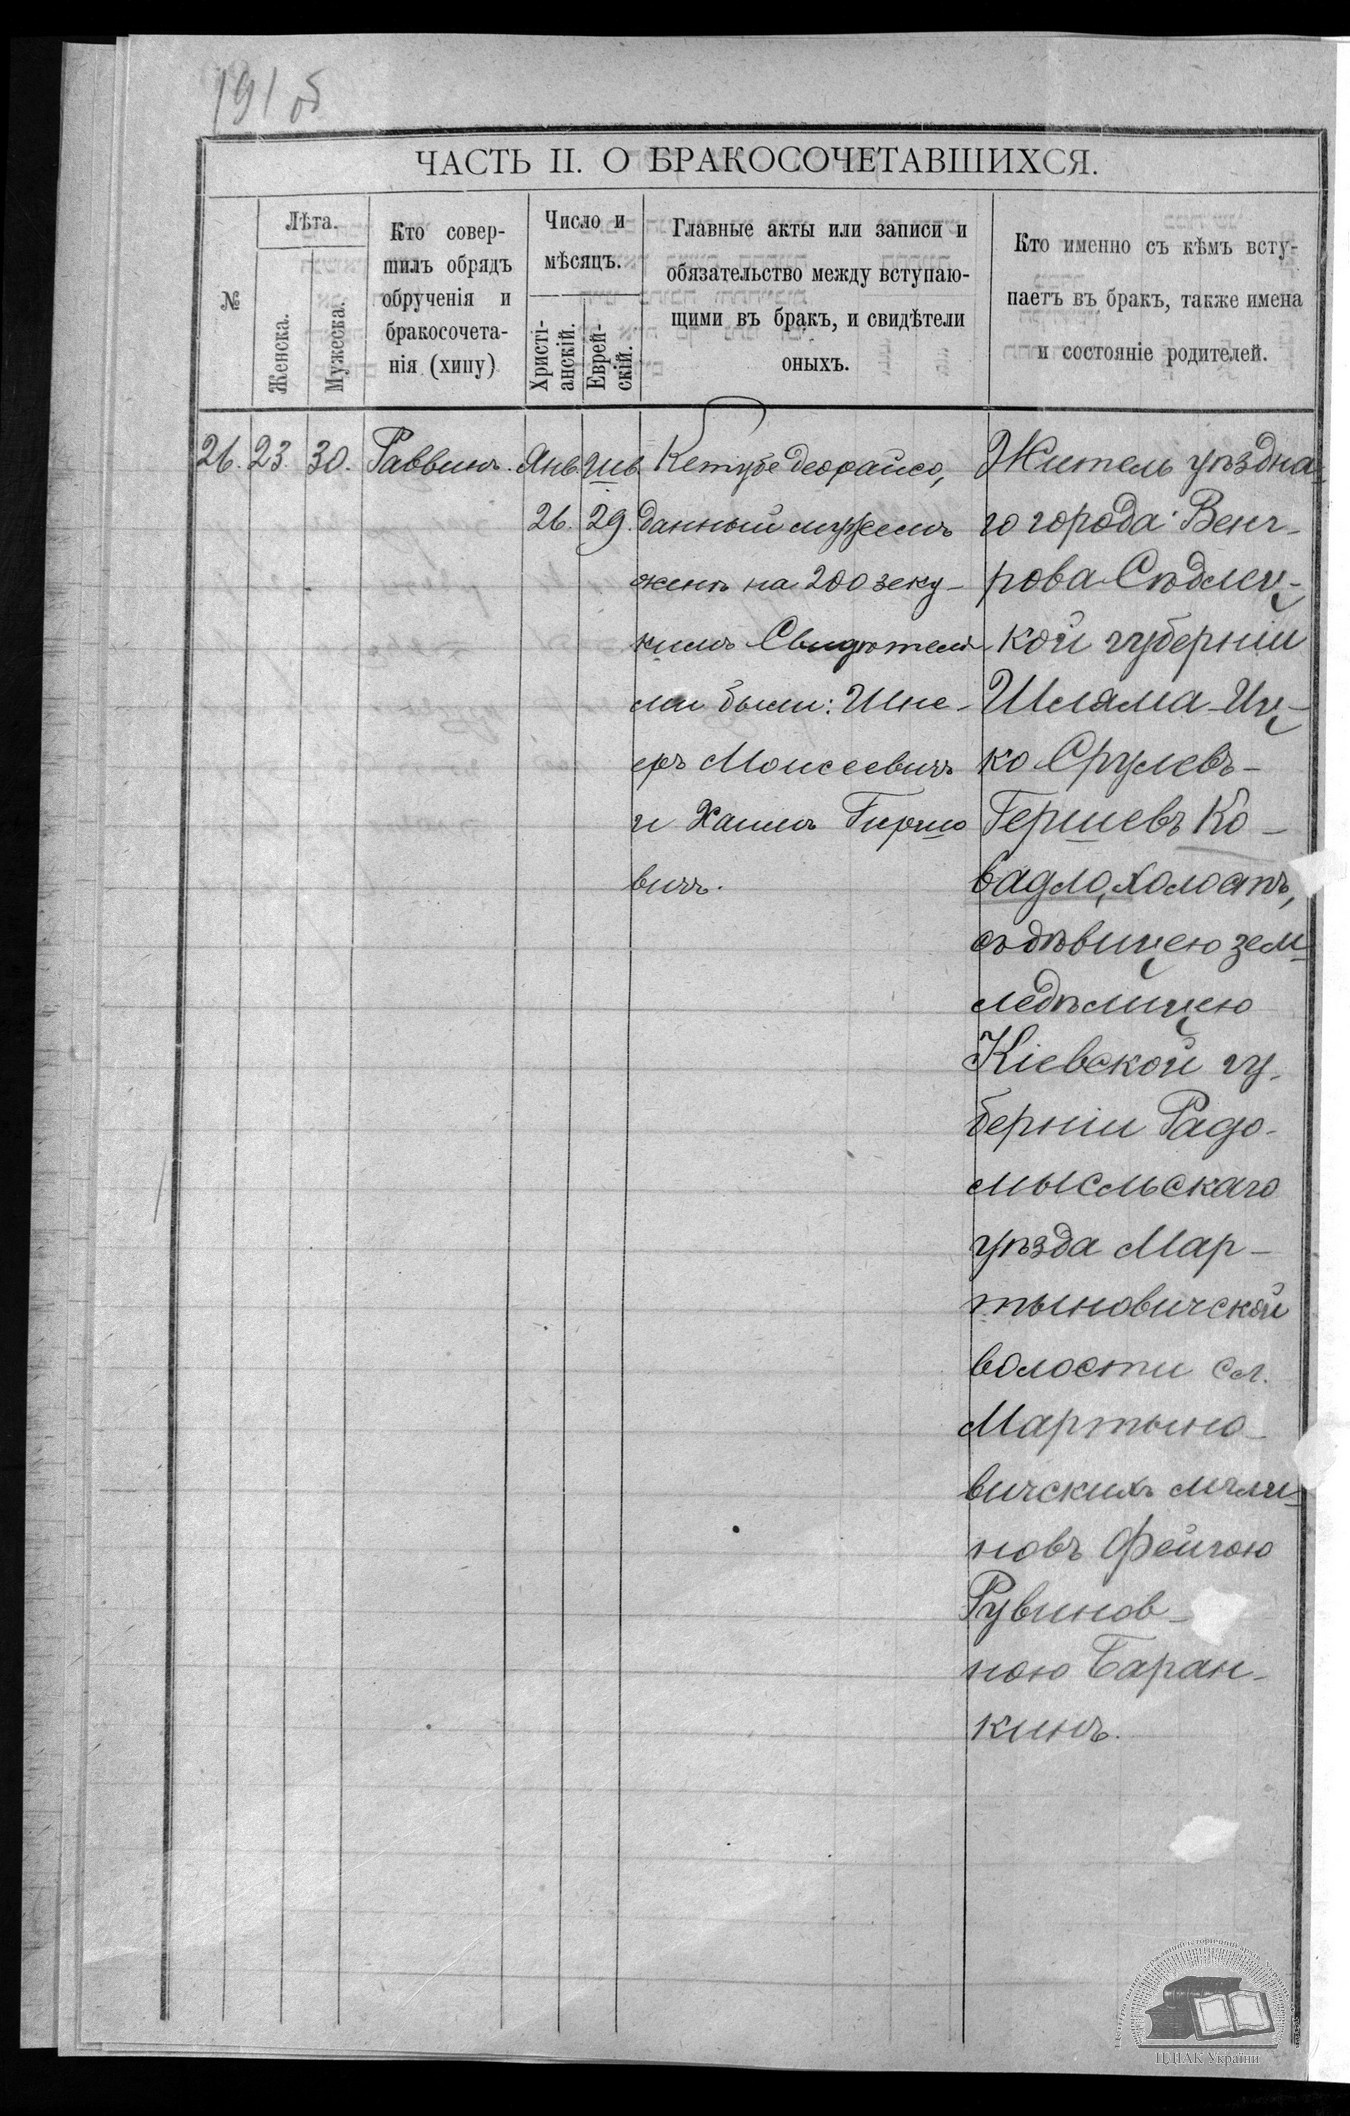 191 об
ЧАСТЬ II. О БРАКОСОЧЕТАВШИХСЯ.
№
Лѣта.
Женска.
Мужеска.
Кто совер-
шилъ обрядъ
обрученія и
бракосочета-
нія (хипу)
Число и
мѣсяцъ.
Христі-
анскій.
Еврей-
скій.
Главные акты или записи и
обязательство между вступаю-
щими въ бракъ, и свидѣтели
оныхъ.
Кто именно съ кѣмъ всту-
паетъ въ бракъ, также имена
и состояніе родителей.
26. 23. 30. Раввинъ. Янв. Шв.
26. 29.
Кетубе деорайсо,
данный мужемъ
женѣ на 200 зеку-
кимъ Свидѣтеля-
ми были: Шне-
еръ Моисеевичъ
и Хаимъ Гиршо
вичъ.
Житель уѣздна-
го города Венг-
рова Сѣдлец-
кой губерніи
Шляма-Иц-
ко Срулевъ-
Гершевъ Ко-
вадло, холостъ,
съ дѣвицею зем-
ледѣлицею
Кіевской гу-
берніи Радо-
мысльскаго
уѣзда Мар-
тыновичской
волости сл.
Мартыно-
вичскихъ млы-
новъ Фейгою
Рувинов-
ною Баран-
кинъ.
ЦДІАК України